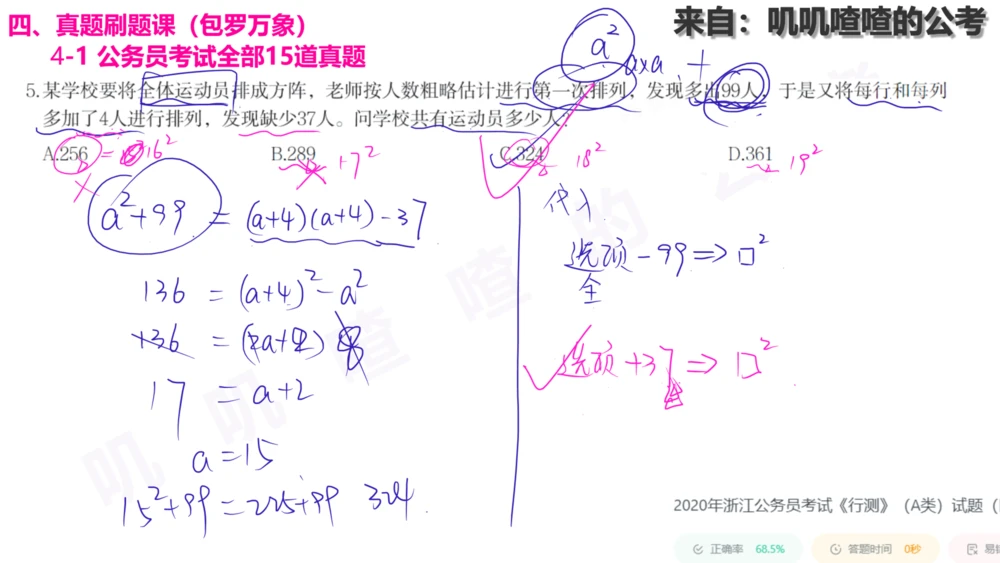 四、真题刷题课（包罗万象）
来自：叽叽喳喳的公考
4-1 公务员考试全部15道真题
a²
a×a
5.某学校要将全体运动员排成方阵，老师按人数粗略估计进行第一次排列，发现多出99人，于是又将每行和每列
多加了4人进行排列，发现缺少37人。问学校共有运动员多少人？
A.256 B.289 C.324 D.361
16² 17² 18² 19²
a²+99 = (a+4)(a+4)-37
136 = (a+4)²-a²
17 = a+2
a=15
15²+99=225+99 324
代入
选项-99⇒□²
全
选项+37⇒□²
叽叽喳喳的公
2020年浙江公务员考试《行测》（A类）试题
正确率 68.5% 答题时间 0秒